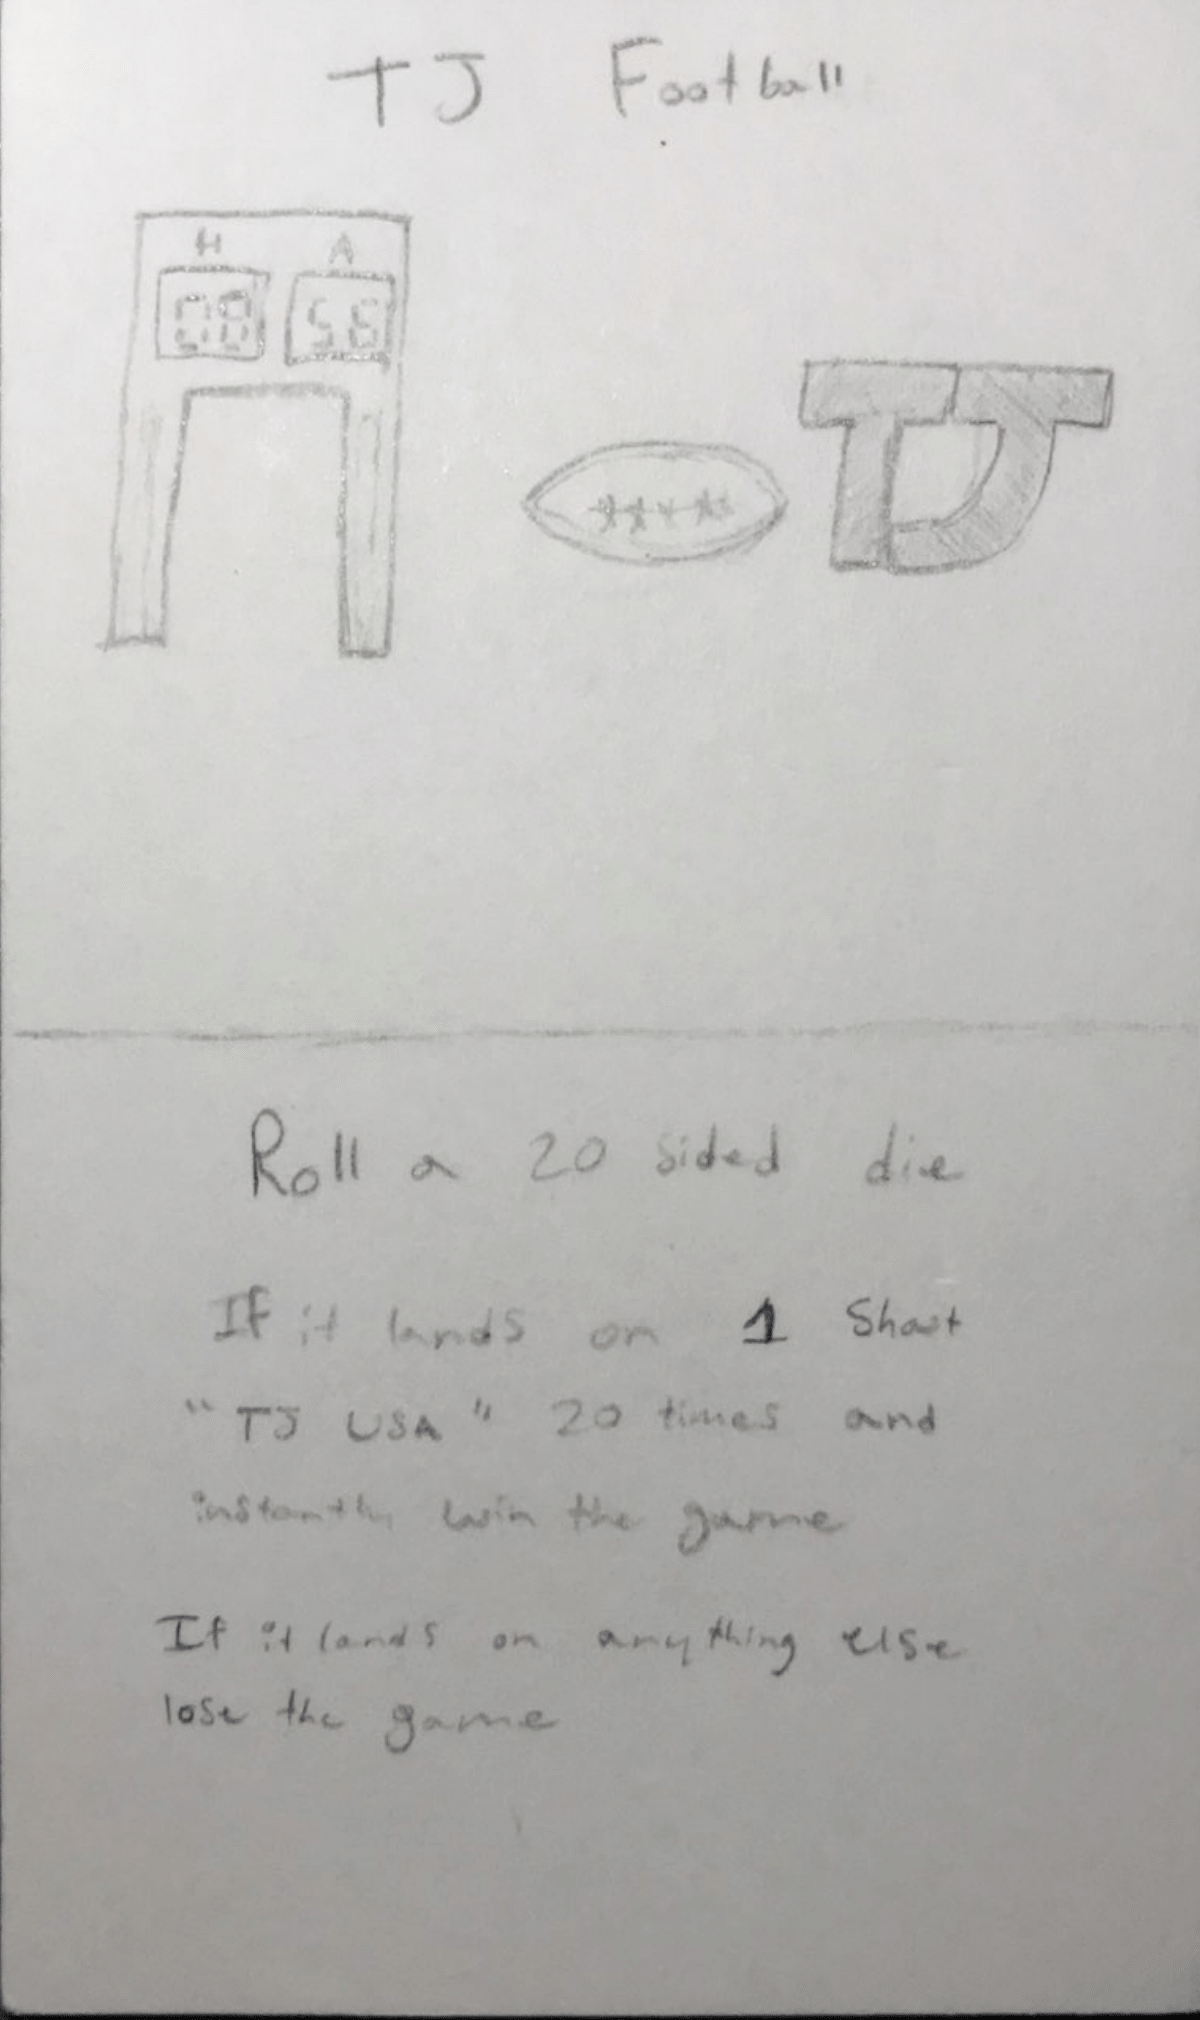 TJ Football
H A
08 56
TJ
Roll a 20 sided die
If it lands on 1 Shout
"TJ USA" 20 times and
instantly win the game
If it lands on anything else
lose the game